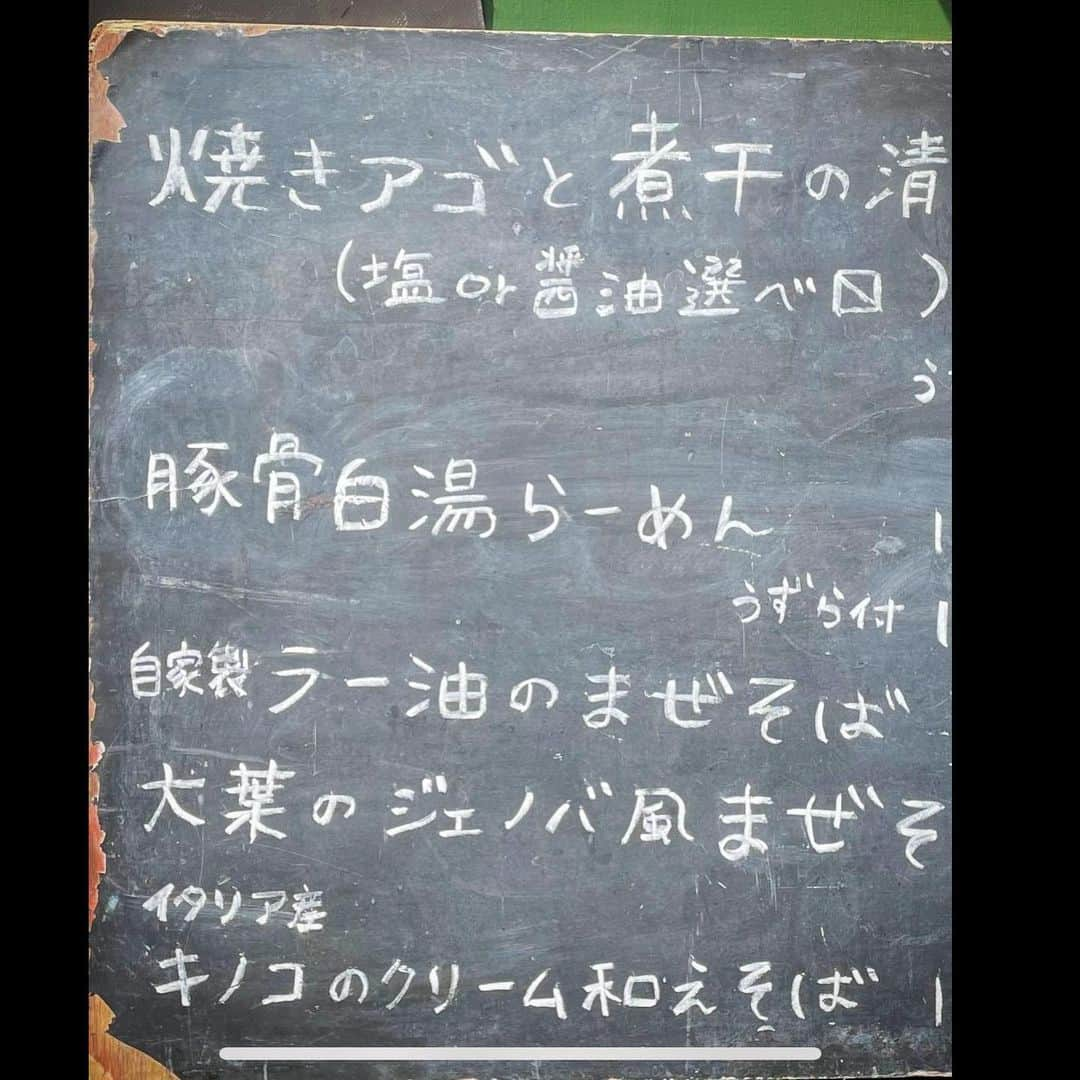 焼きアゴと煮干の清
(塩or醤油選べ〼)
う
豚骨白湯らーめん 1
うずら付 1
自家製ラー油のまぜそば
大葉のジェノバ風まぜそ
イタリア産
キノコのクリーム和えそば 1